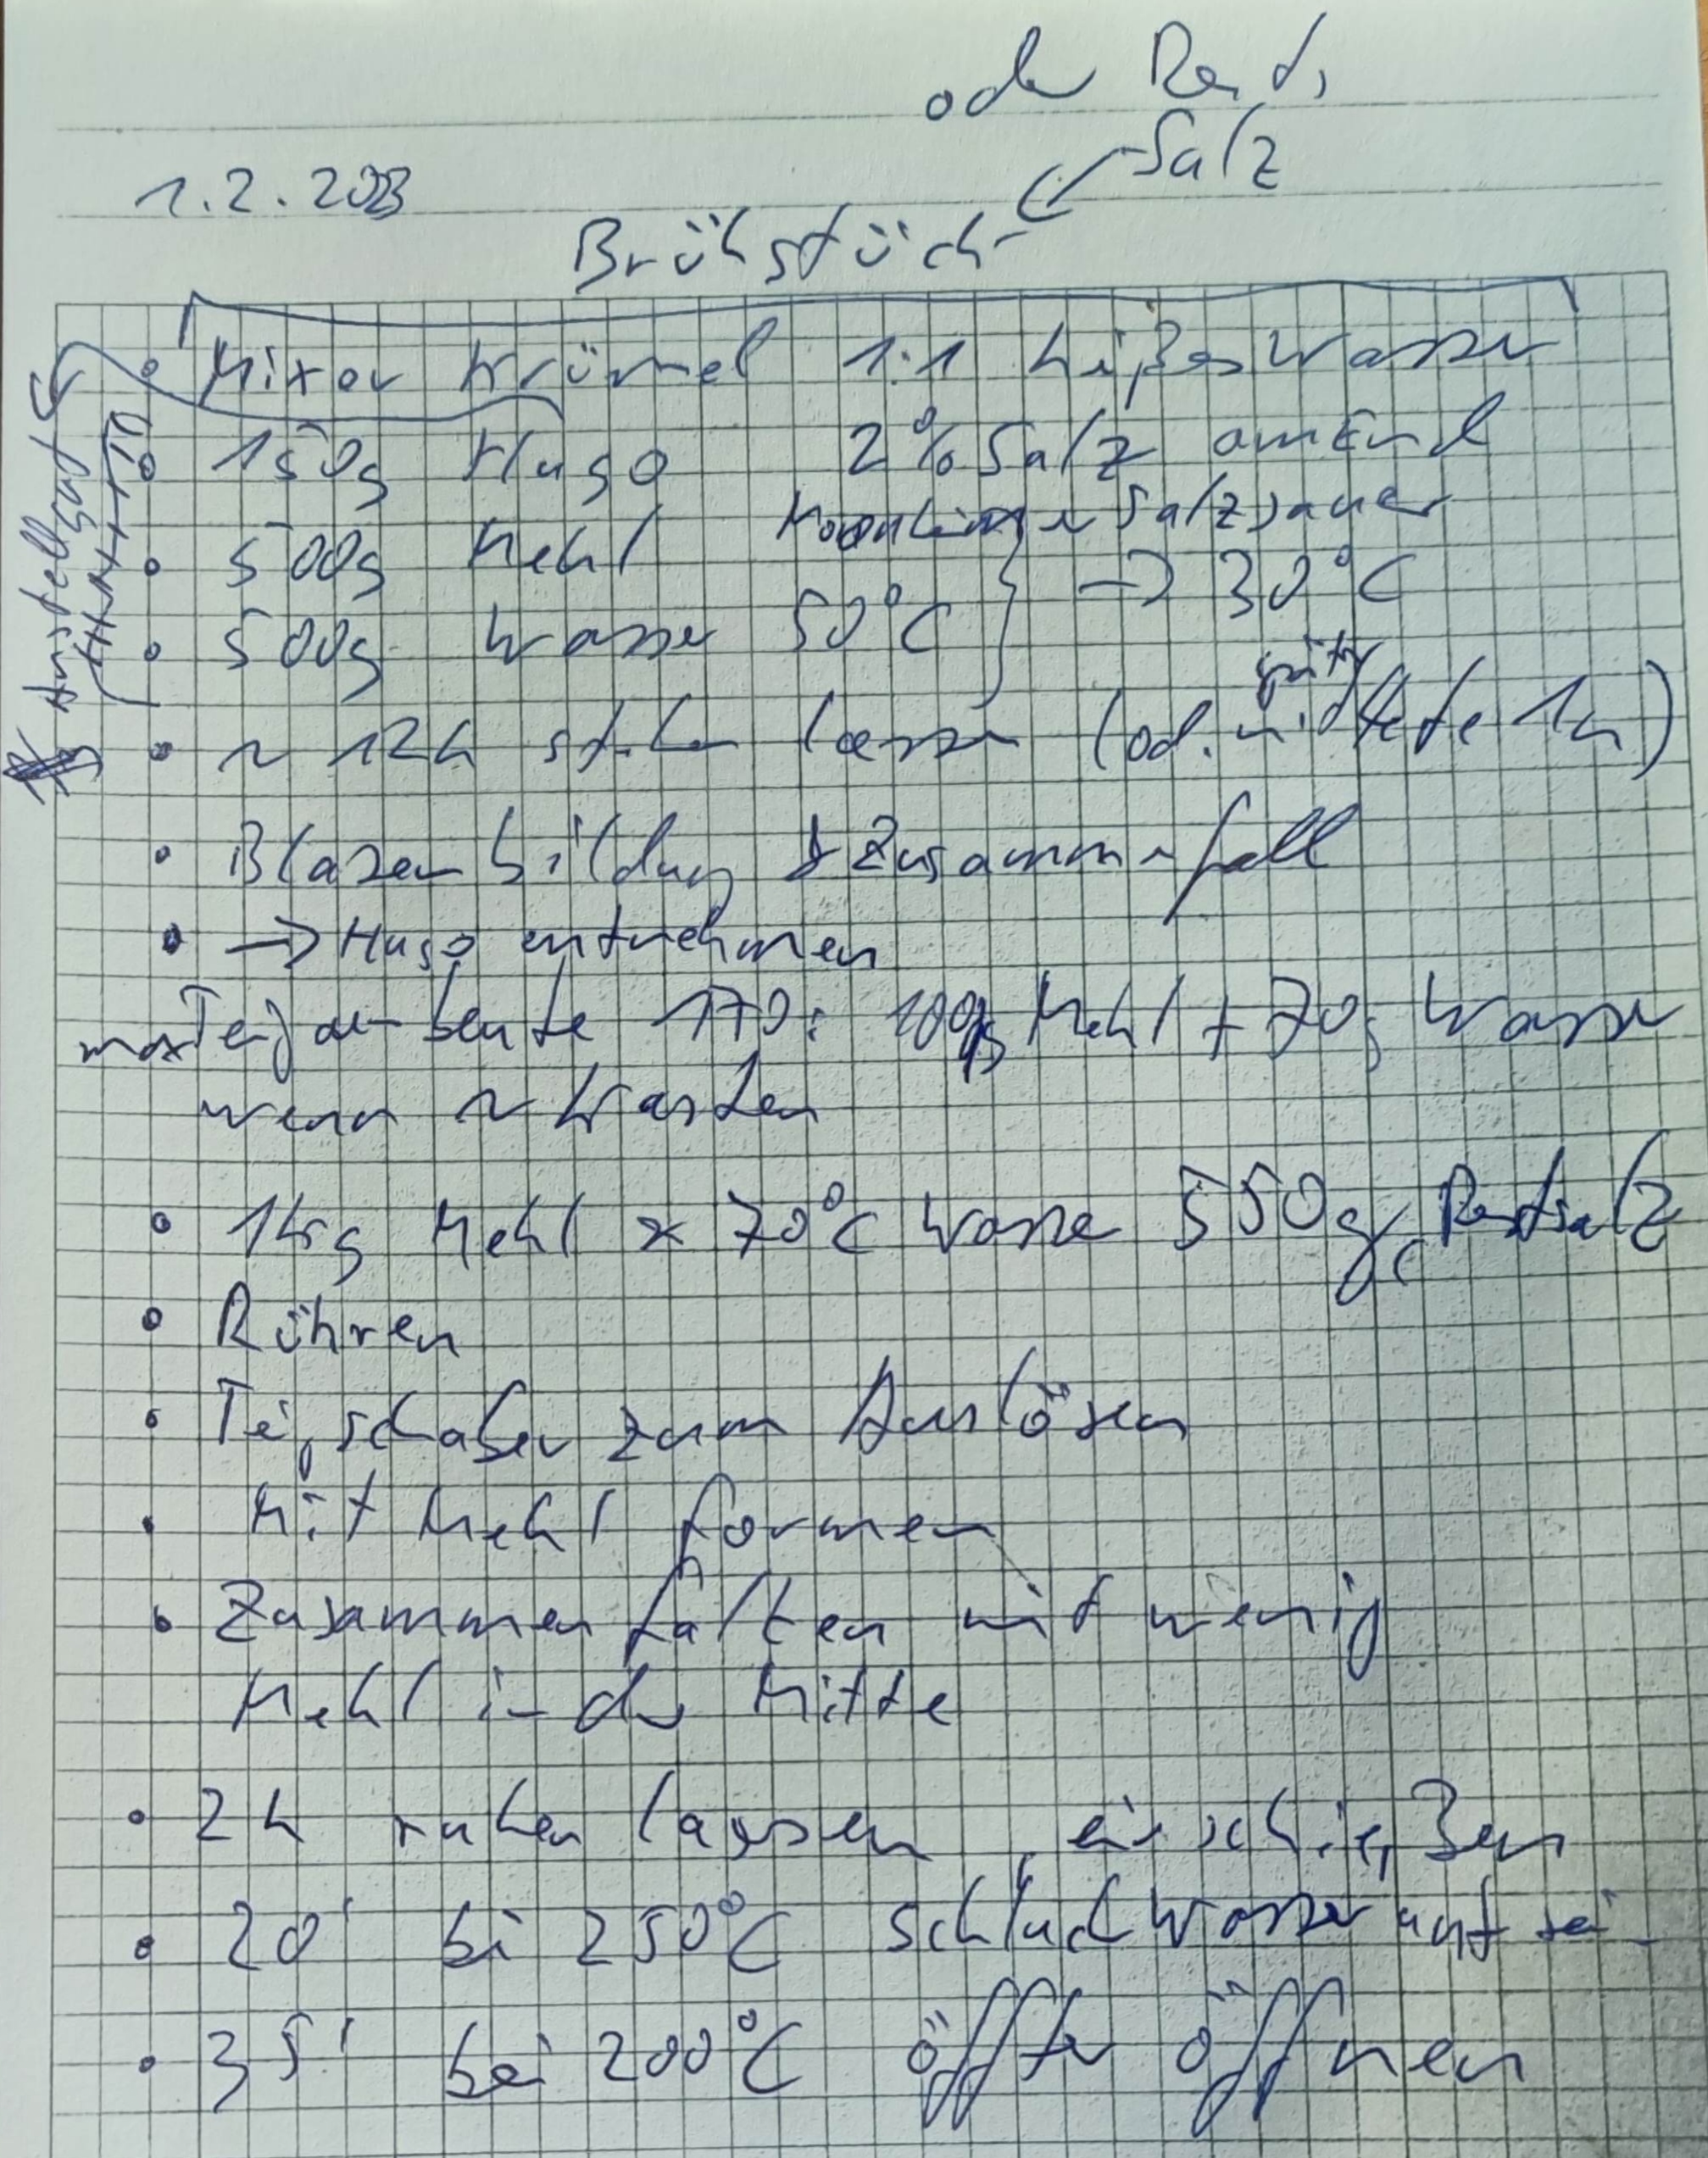 oder Rest
Salz
1.2.2023
Brühstück
• Mixer Krümel 1:1 heißes Wasser
• 150g Hugo 2% Salz am End
Anstellgut
• 500g Mehl Monheimer Salzsauer
• 500g Wasser 50°C } → 30°C
• ~ 12h stehen lassen (od. mit Hefe 1h)
• Blasenbildung & Zusammenfall
• → Hugo entnehmen
max Teigausbeute 170: 100g Mehl + 70g Wasser
wenn ~ Kasten
• 1kg Mehl × 70°C Wasser 550g, Restsalz
• Rühren
• Teigschaber zum Auslösen
• Mit Mehl formen
• Zusammenfalten mit wenig
Mehl in der Mitte
• 2h ruhen lassen, einschießen
• 20' bei 250°C Schluck Wasser auf
• 35' bei 200°C öfter öffnen